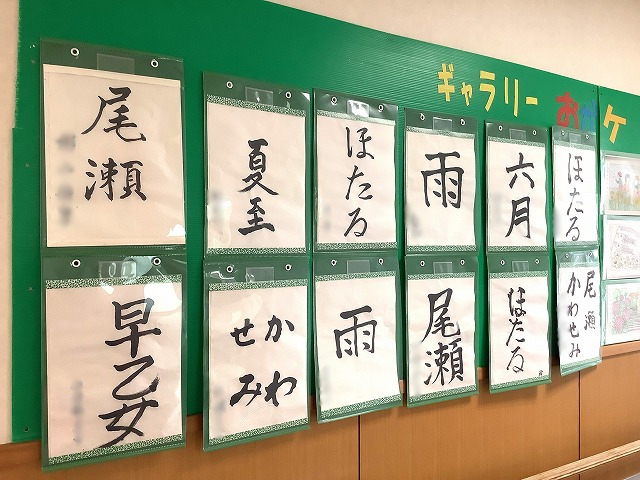 ギャラリー おがケ
尾瀬
夏至
ほたる
雨
六月
ほたる
早乙女
かわ
せみ
雨
尾瀬
ほたる
尾瀬
かわせみ